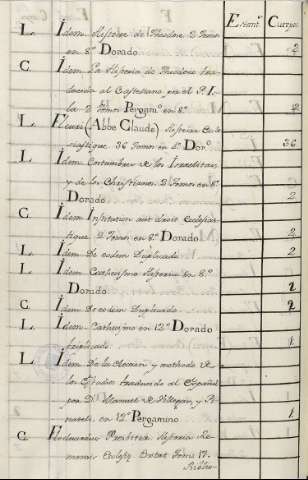 Estant.ᵉ Cuerpos
L. Idem Histoire de Theodose 2 Tomos
en 8º Dorado 2
C. Idem La Historia de Theodosio tra-
ducida al Castellano, por el P. Isla
2 Tomos Pergamº en 8º 2
L. Fleuri (Abbe Claude) Histoire Ecle-
siastique 36 Tomos en Dorº 36
L. Idem Costumbres de los Israelitas,
y de los Christianos 2 Tomos en 8º
Dorado 2
C. Idem Institution aut droit Eclesias-
tique 2 Tomos en 8º Dorado 2
L. Idem De eodem Duplicado 2
L. Idem en 8º
Dorado 2
C. Idem De eodem Duplicado 2
L. Idem Catherismo en 12º Dorado
triplicado 1
L. Idem De la eleccion, y methodo de
los Estudios traducido al Español
por Dⁿ Manuel de Villegas, y
en 12º Pergamino 1
C. Presbitero Historia
Tomis 17.